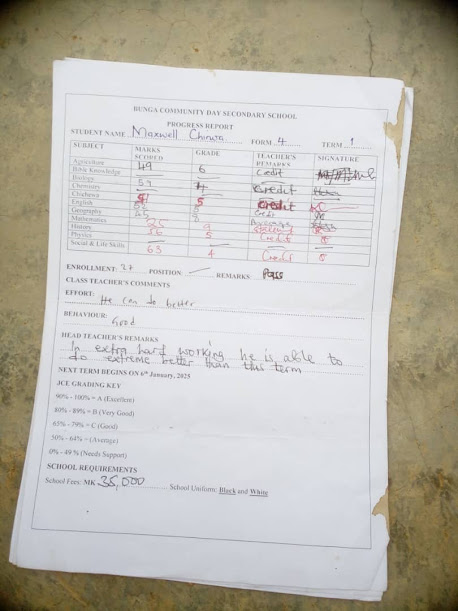 BUNGA COMMUNITY DAY SECONDARY SCHOOL
PROGRESS REPORT
STUDENT NAME Maxwell Chirwa FORM 4 TERM 1
SUBJECT MARKS SCORED GRADE TEACHER'S REMARKS SIGNATURE
Agriculture 49 6 Credit
Bible Knowledge
Biology
Chemistry Credit
Chichewa
English 5 Credit
Geography
Mathematics
History 25 9
Physics 5 Credit
Social & Life Skills 63 4 Credit
ENROLLMENT: 27 POSITION: REMARKS: Pass
CLASS TEACHER'S COMMENTS
EFFORT: He can do better
BEHAVIOUR: Good
HEAD TEACHER'S REMARKS
In extra hard working he is able to
do extreme better than this term
NEXT TERM BEGINS ON 6th January, 2025
JCE GRADING KEY
90% - 100% = A (Excellent)
80% - 89% = B (Very Good)
65% - 79% = C (Good)
50% - 64% = (Average)
0% - 49 % (Needs Support)
SCHOOL REQUIREMENTS
School Fees: MK 35,000 School Uniform: Black and White